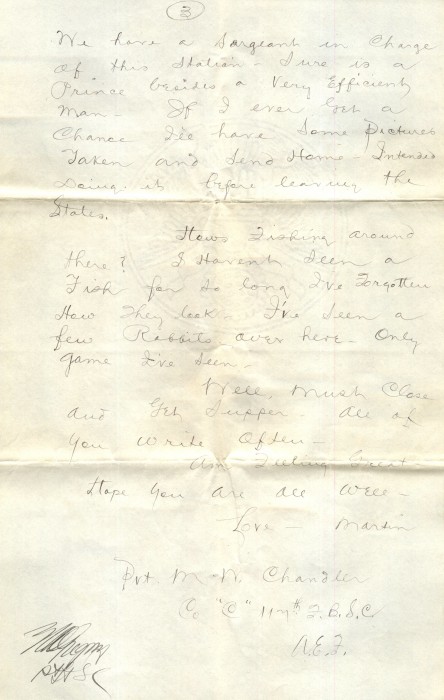 3
We have a Sargeant in Charge
of this Station - Sure is a
Prince besides a Very Efficient
Man - If I ever Get a
Chance I'll have Some Pictures
Taken and Send Home - Intended
Doing it before leaving the
States.
Hows Fishing around
there? I Havent Seen a
Fish for so long I've Forgotten
How They look - I've Seen a
few Rabbits over here - Only
Game I've Seen -
Well, Must Close
and Get Supper - All of
You Write Often -
Am Feeling Great -
Hope You are all well -
Love - Martin
Pvt M. W. Chandler
Co "C" F.B.S.C
A.E.F.